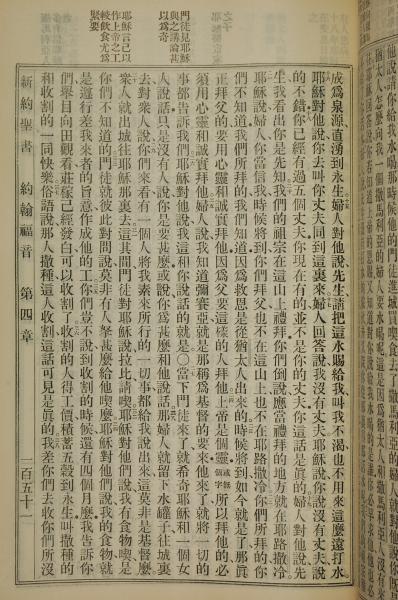 成爲泉源直湧到永生婦人對他說先生請把這水賜給我叫我不渴也不用來這麼遠打水
耶穌對他說你去叫你丈夫同到這裏來婦人回答說我沒有丈夫耶穌說你說沒有丈夫說
的不錯你已經有過五個丈夫你現在有的並不是你的丈夫你這話是眞的婦人對他說先
生我看出你是先知我們的祖宗在這山上禮拜你們倒說應當禮拜的地方就在耶路撒冷
耶穌說婦人你當信我時候將到你們拜父也不在這山上也不在耶路撒冷你們所拜的你
們不知道我們所拜的我們知道因爲救恩是從猶太人出來的時候將到如今就是了那眞
正拜父的要用心靈和誠實拜他因爲父要這樣的人拜他上帝是個靈或無個字所以拜他的必
須用心靈和誠實拜他婦人說我知道彌賽亞就是那稱爲基督的要來他來了就將一切的
事都告訴我們耶穌對他說我這和你說話的就是〇當下門徒來了就希奇耶穌和一個女
人說話只是沒有人說你是要甚麼或說你爲甚麼和他說話那婦人就留下水罐子往城裏
去對衆人說你們來看有一個人將我素來所行的一切事都給我說出來這莫非是基督麼
衆人就出城往耶穌那裏去這其間門徒對耶穌說拉比請喫耶穌對他們說我有食物喫是
你們不知道的門徒就彼此對問說莫非有人拏甚麼給他喫麼耶穌對他們說我的食物就
是遵行差我來者的旨意作成他的工你們豈不說到收割的時候還有四個月麼我告訴你
們舉目向田觀看莊稼已經發白可以收割了收割的人得工價積蓄五穀到永生叫撒種的
和收割的一同快樂俗語說那人撒種這人收割這話可見是眞的我差你們去收你們所沒
門徒見耶穌
與之講論甚
以爲奇
耶穌言己以
作上帝之工
較飲食尤爲
緊要
新約聖書 約翰福音 第四章 一百五十一